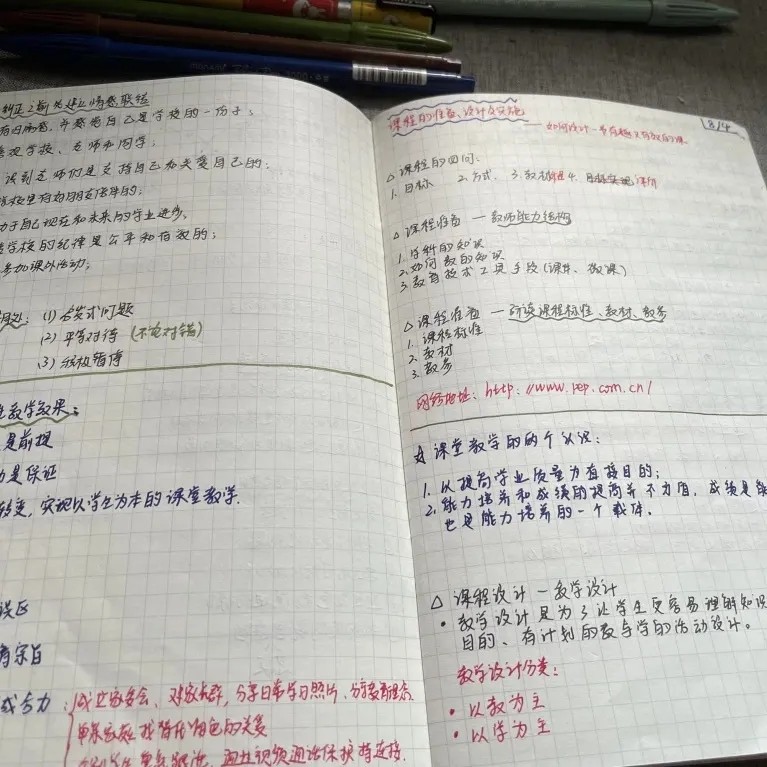 纠正之前先建立情感联结
有归属感，并感觉自己是学校的一份子；
喜欢学校、老师和同学；
认识到老师们是支持自己和关爱自己的；
学校里有好朋友
有助于自己现在和未来的学业进步。
学校的纪律是公平和有效的；
参加课外活动；
(1) 启发式问题
(2) 平等对待 (不论对错)
(3) 积极暂停
教学效果：
是前提
是保证
转变，实现以学生为本的课堂教学.
误区
有宗旨
成合力：成立家委会、建家长群，分享日常学习照片、分享教育理念
通过视频通话保护 连接.
课程的准备、设计及实施
——如何设计一节有趣又有效的课
8/4
△ 课程的四问：
1. 目标 2. 方式. 3. 教材 4. 评价
△ 课程准备 — 教师能力结构
1. 学科的知识
2. 如何教的知识
3. 教育技术工具手段 (课件、微课)
△ 课程准备 — 研读课程标准、教材、教参
1. 课程标准
2. 教材
3. 教参
网络地址：http://www.pep.com.cn/
课堂教学的两个认识：
1. 以提高学业质量为直接目的；
2. 能力培养和成绩的提高并不矛盾，成绩是能
也是能力培养的一个载体.
△ 课程设计 — 教学设计
• 教学设计是为了让学生更容易理解知识
目的、有计划的教与学的活动设计。
教学设计分类：
• 以教为主
• 以学为主